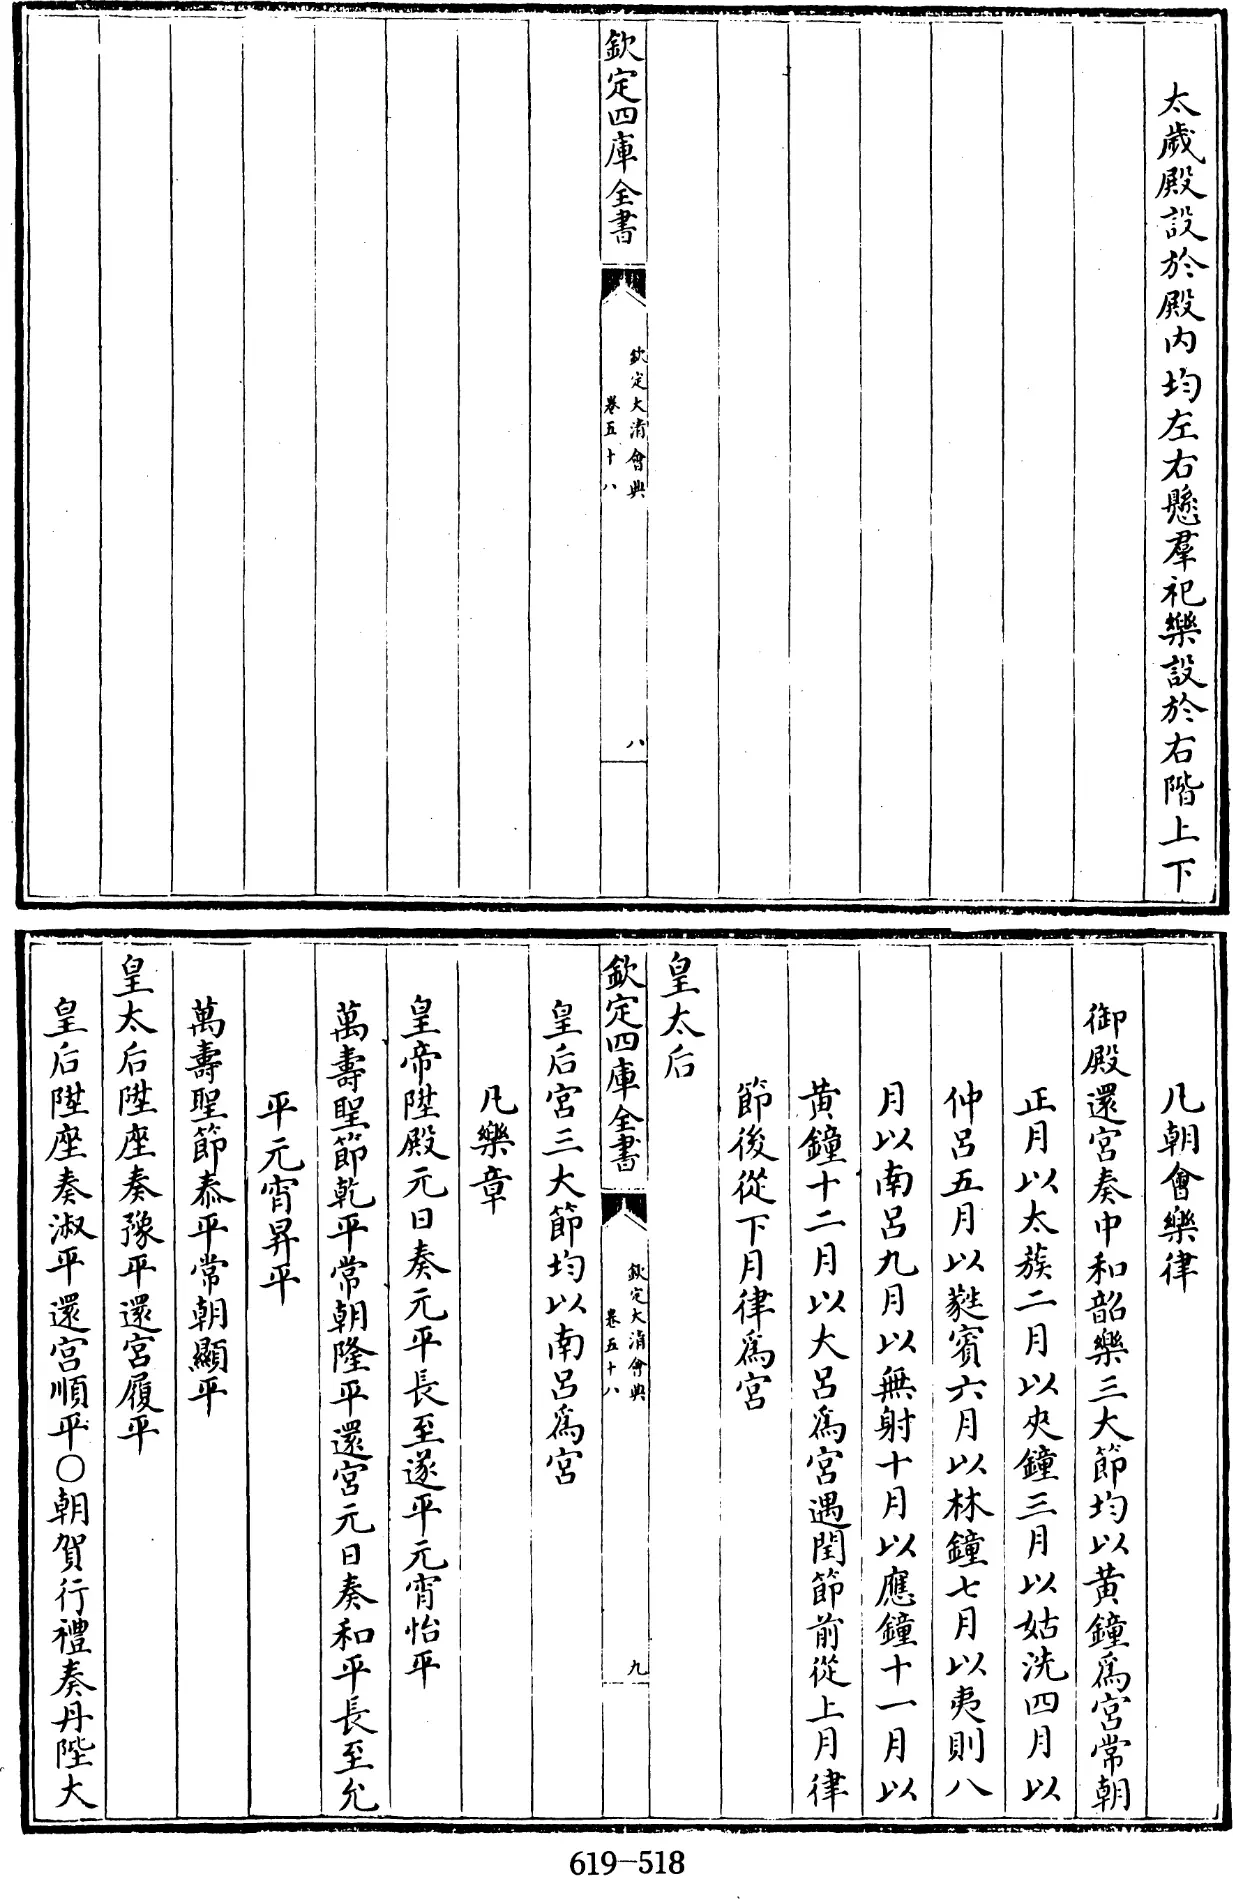 太歲殿設於殿内均左右懸羣祀樂設於右階上下
欽定四庫全書
欽定大清會典
卷五十八
八
凡朝會樂律
御殿還宮奏中和韶樂三大節均以黄鐘爲宮常朝
正月以太蔟二月以夾鐘三月以姑洗四月以
仲呂五月以蕤賓六月以林鐘七月以夷則八
月以南呂九月以無射十月以應鐘十一月以
黄鐘十二月以大呂爲宮遇閏節前從上月律
節後從下月律爲宮
皇太后
欽定四庫全書
欽定大清會典
卷五十八
九
皇后宮三大節均以南呂爲宮
凡樂章
皇帝陞殿元日奏元平長至遂平元宵怡平
萬壽聖節乾平常朝隆平還宮元日奏和平長至允
平元宵昇平
萬壽聖節泰平常朝顯平
皇太后陞座奏豫平還宮履平
皇后陞座奏淑平還宮順平○朝賀行禮奏丹陛大
619-518